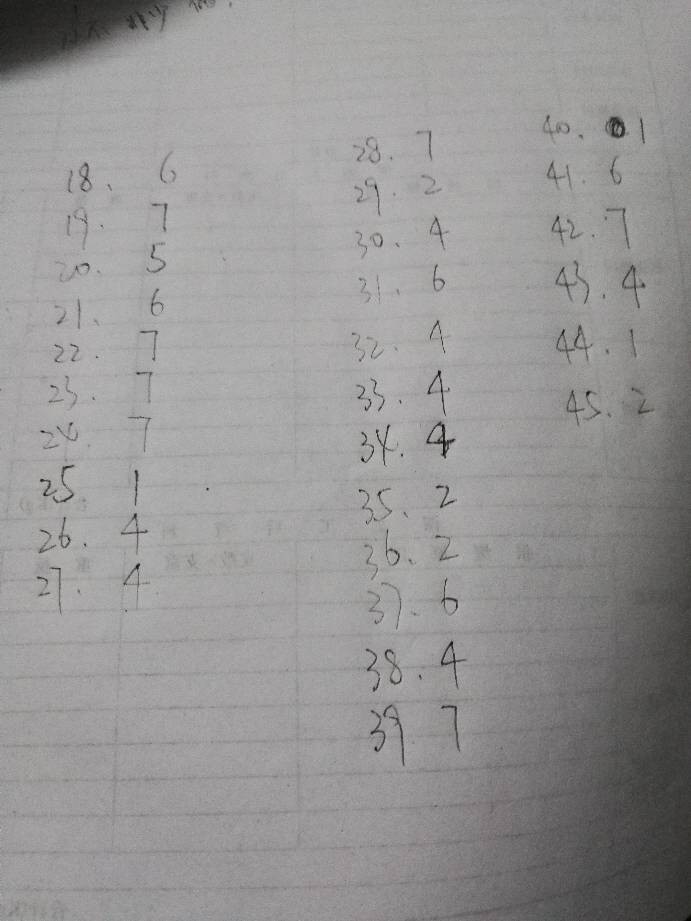 18. 6
19. 7
20. 5
21. 6
22. 7
23. 7
24. 7
25 1
26. 4
27. 4
28. 7
29. 2
30. 4
31. 6
32. 4
33. 4
34. 4
35. 2
36. 2
37. 6
38. 4
39 7
40. 1
41. 6
42. 7
43. 4
44. 1
45. 2